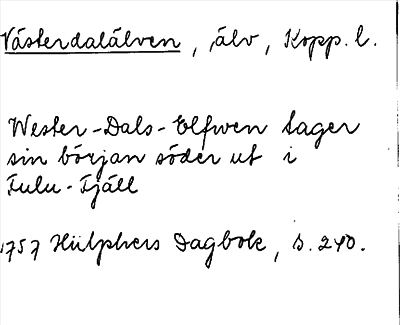 Västerdalälven, älv, Kopp. l.
Wester-Dals-Elfwen tager
sin början söder ut i
Fulu-Fjäll
1757 Hülphers Dagbok, s. 240.